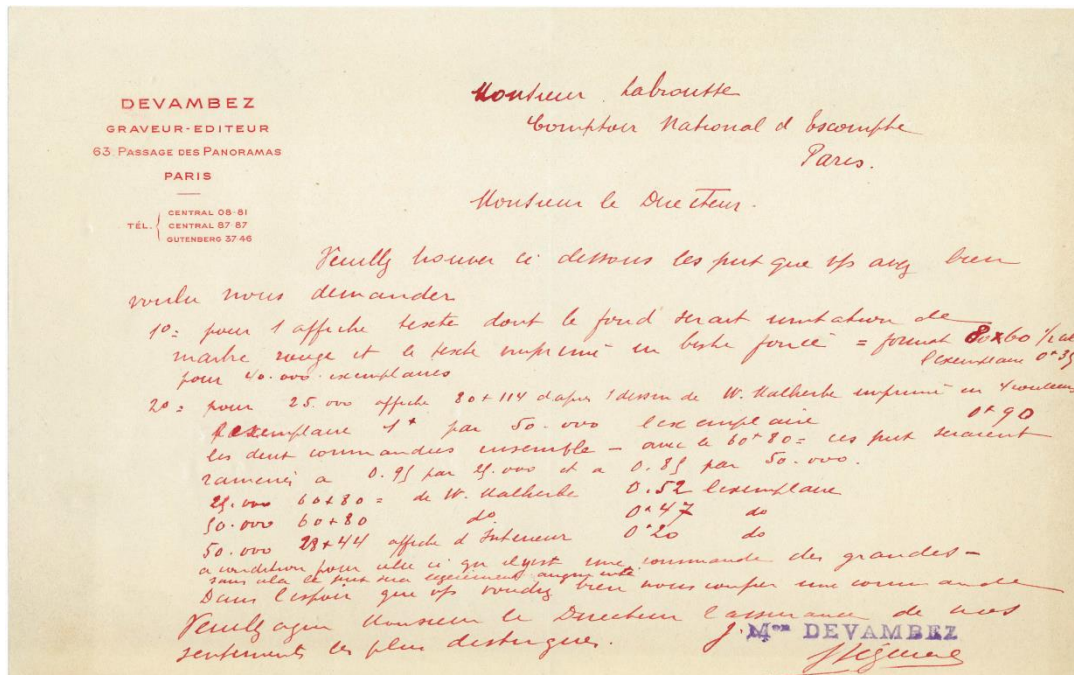 DEVAMBEZ
GRAVEUR-EDITEUR
63, PASSAGE DES PANORAMAS
PARIS
TÉL.
CENTRAL 08-81
CENTRAL 87-87
GUTENBERG 37-46
Monsieur Labrousse
Comptoir National d Escompte
Paris.
Monsieur le Directeur.
Veuillez trouver ci dessous les prix que vs avez bien
voulu nous demander
1º = pour 1 affiche texte dont le fond serait imitation de
marbre rouge et le texte imprimé en bistre foncé = format 80x60
l'exemplaire 0+35
pour 40.000 exemplaires
2º = pour 25.000 affiche 80+114 d'apres 1 dessin de W. Malherbe imprimé en 4 couleurs
l'exemplaire 1+ par 50.000 l'exemplaire 0+90
les deux commandées ensemble — avec le 60+80 = ces prix seraient
ramenés a 0.95 par 25.000 et a 0.85 par 50.000.
25.000 60+80 = de W. Malherbe 0.52 l'exemplaire
50.000 60+80 do 0+47 do
50.000 28+44 affiche d'Interieur 0+20 do
a condition pour celle ci qu'il y est une commande des grandes —
sans cela ce prix sera legerement augmenté
Dans l'espoir que vs voudrez bien nous confier une commande
Veuillez agreer Monsieur le Directeur l'assurance de mes
sentiments les plus distingues.
Mon DEVAMBEZ